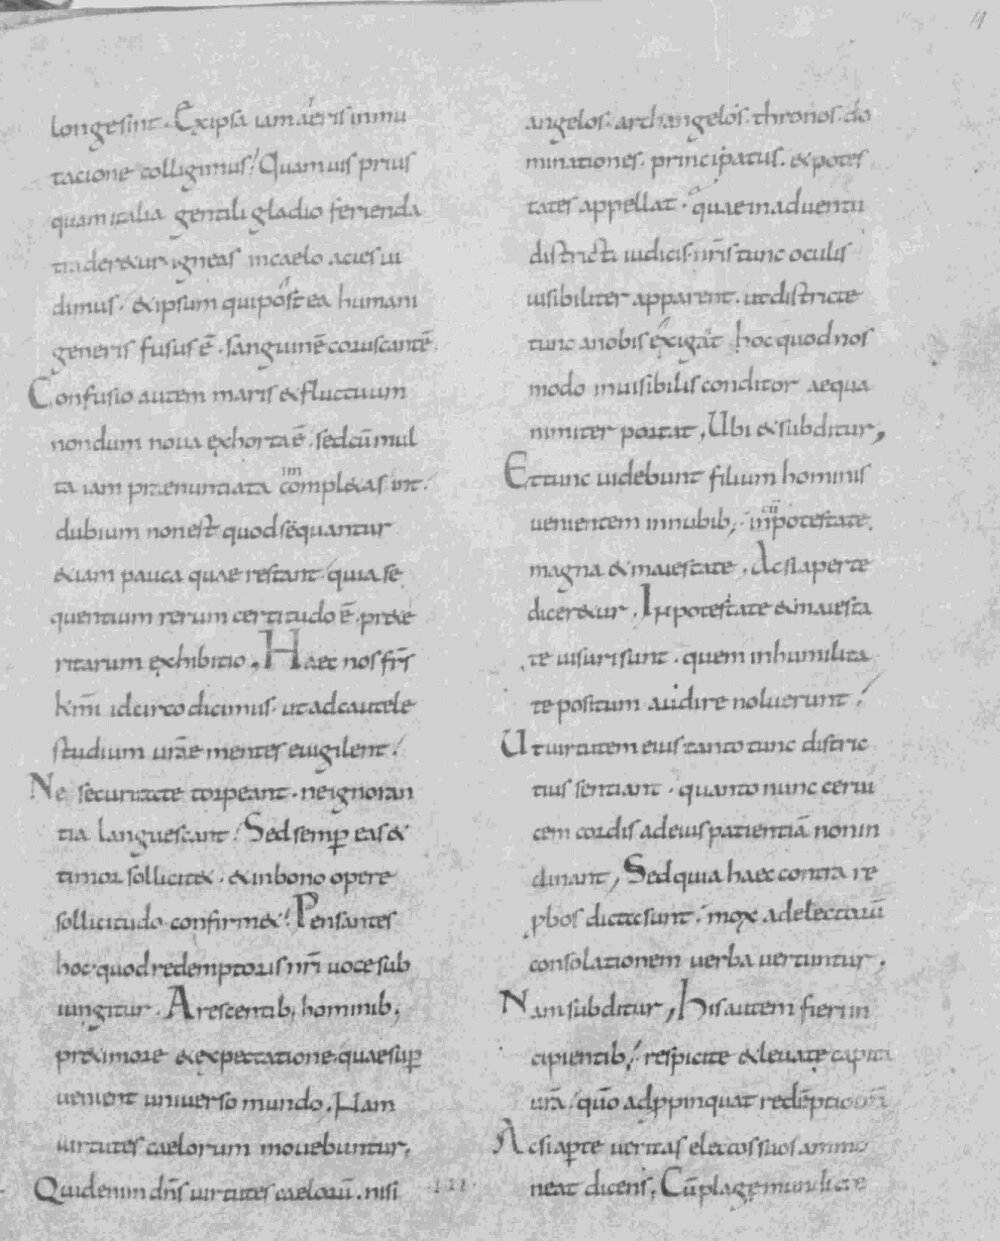 longe sint. Ex ipsa iam aeris inmu
tacione colligimus! Quamuis prius
quam italia gentili gladio ferienda
traderetur. igneas in caelo acies ui
dimus. et ipsum qui postea humani
generis fusus ē. sanguinē coruscantē.
Confusio autem maris et fluctuum
nondum noua exhorta ē. sed cū mul
ta iam praenuntiata cōmpleta sint.
dubium non est quod sequantur
etiam pauca quae restant. quia se
quentium rerum certitudo ē. praete
ritarum exhibitio. Haec nos frs̄
km̄i idcirco dicimus. ut ad cautele
studium urāe mentes euigilent!
Ne securitate torpeant. ne ignoran
tia languescant! Sed semp̄ eas et
timor sollicitet. et in bono opere
sollicitudo confirmet! Pensantes
hoc quod redemptoris nr̄i uoce sub
iungitur. Arescentib; hominib;
prae timore et expectatione. quae sup̄
uenient uniuerso mundo. Nam
uirtutes caelorum mouebuntur.
Quid enim dn̄s uirtutes caelorū. nisi
angelos. archangelos. thronos. do
minationes. principatus. et potes
tates appellat. quae in aduentu
districti iudicis. nr̄is tunc oculis
uisibiliter apparent. ut districte
tunc a nobis exigat hoc quod nos
modo inuisibilis conditor aequa
nimiter portat. Ubi et subditur,
Et tunc uidebunt filium hominis
uenientem in nubib; in potestate
magna et maiestate. Ac si aperte
diceretur. In potestate et maiesta
te uisuri sunt. quem in humilita
te positum audire noluerunt!
Ut uirtutem eius tanto tunc distric
tius sentiant. quanto nunc cerui
cem cordis ad eius patientiā non in
clinant, Sed quia haec contra re
pbos dicta sunt. mox ad electorū
consolationem uerba uertuntur.
Nam subditur, his autem fieri in
cipientib;! respicite et leuate capita
urā. quō adppinquat redēptio urā
Ac si apte ueritas electos suos ammo
neat dicens; Cū plage mundi cre